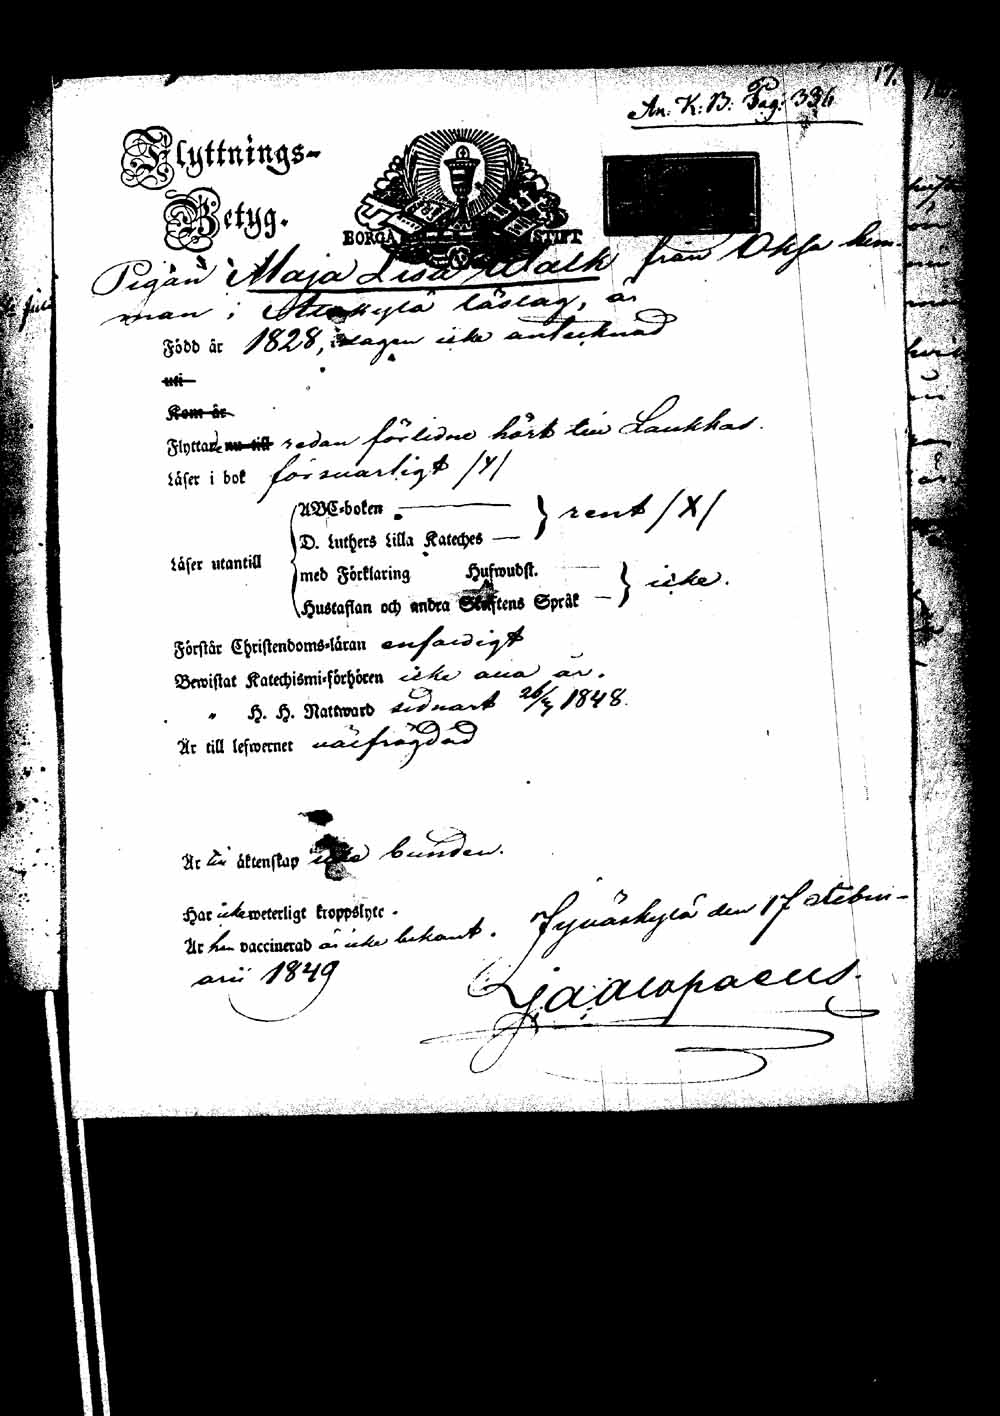 17.
An: K: B: Pag: 336
Flyttnings-
Betyg.
BORGÅ STIFT
Pigan Maja Lisa Walk från hem-
man i läslag, är
Född år 1828, dagen icke antecknad
uti
Kom år
Flyttade nu till redan förlidne höst till Laukkas.
Läser i bok försvarligt /Y/
ABC-boken
D. Luthers Lilla Kateches — } rent /X/
Läser utantill
med Förklaring Hufwudst.
Hustaflan och andra Skriftens Språk — } icke.
Förstår Christendoms-läran enfaldigt
Bewistat Katechismi-förhören icke alla år.
" H. H. Nattward sednast 26/ 1848.
Är till lefwernet välfrägdad
Är till äktenskap icke bunden.
Har icke weterligt kroppslyte.
Är hon vaccinerad är icke bekant. Jyväskylä den 17 Febru-
arii 1849